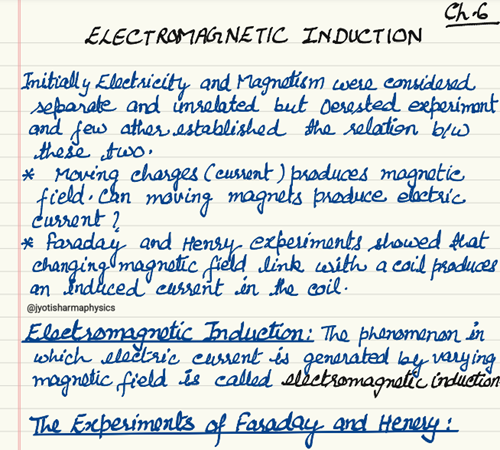 Ch-6
ELECTROMAGNETIC INDUCTION
Initially Electricity and Magnetism were considered
separate and unrelated but Oerested experiment
and few other established the relation b/w
these two.
* Moving charges (current) produces magnetic
field. Can moving magnets produce electric
current?
* Faraday and Henry experiments showed that
changing magnetic field link with a coil produces
an induced current in the coil.
@jyotisharmaphysics
Electromagnetic Induction: The phenomenon in
which electric current is generated by varying
magnetic field is called electromagnetic induction
The Experiments of Faraday and Henery: